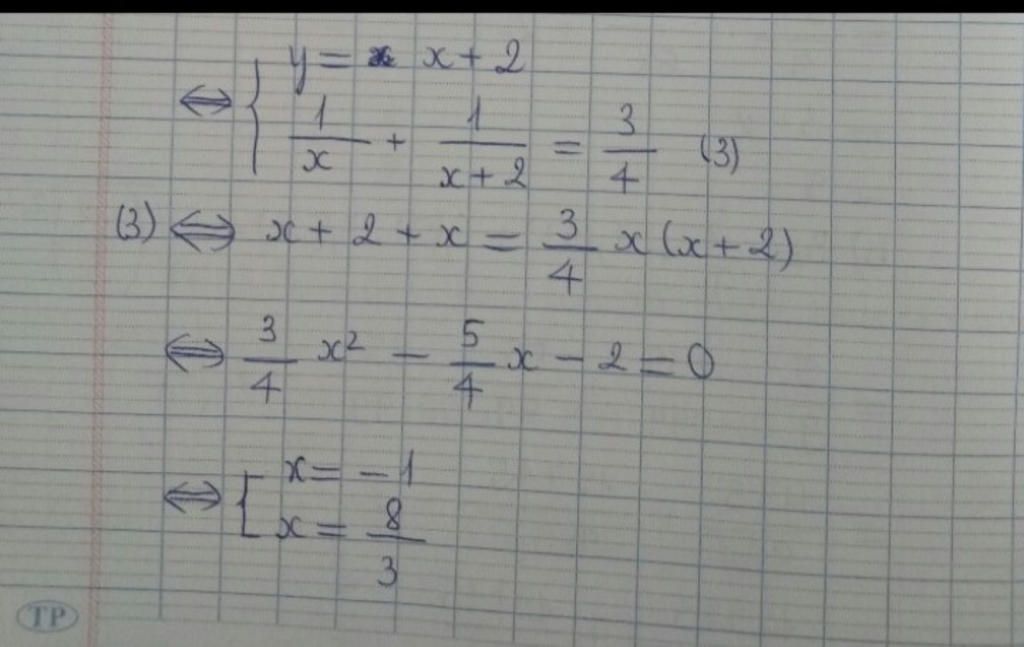 ⇔ { y = x + 2
1/x + 1/(x + 2) = 3/4 (3)
(3) ⇔ x + 2 + x = 3/4 x (x + 2)
⇔ 3/4 x² - 5/4 x - 2 = 0
⇔ [ x = - 1
x = 8/3
TP